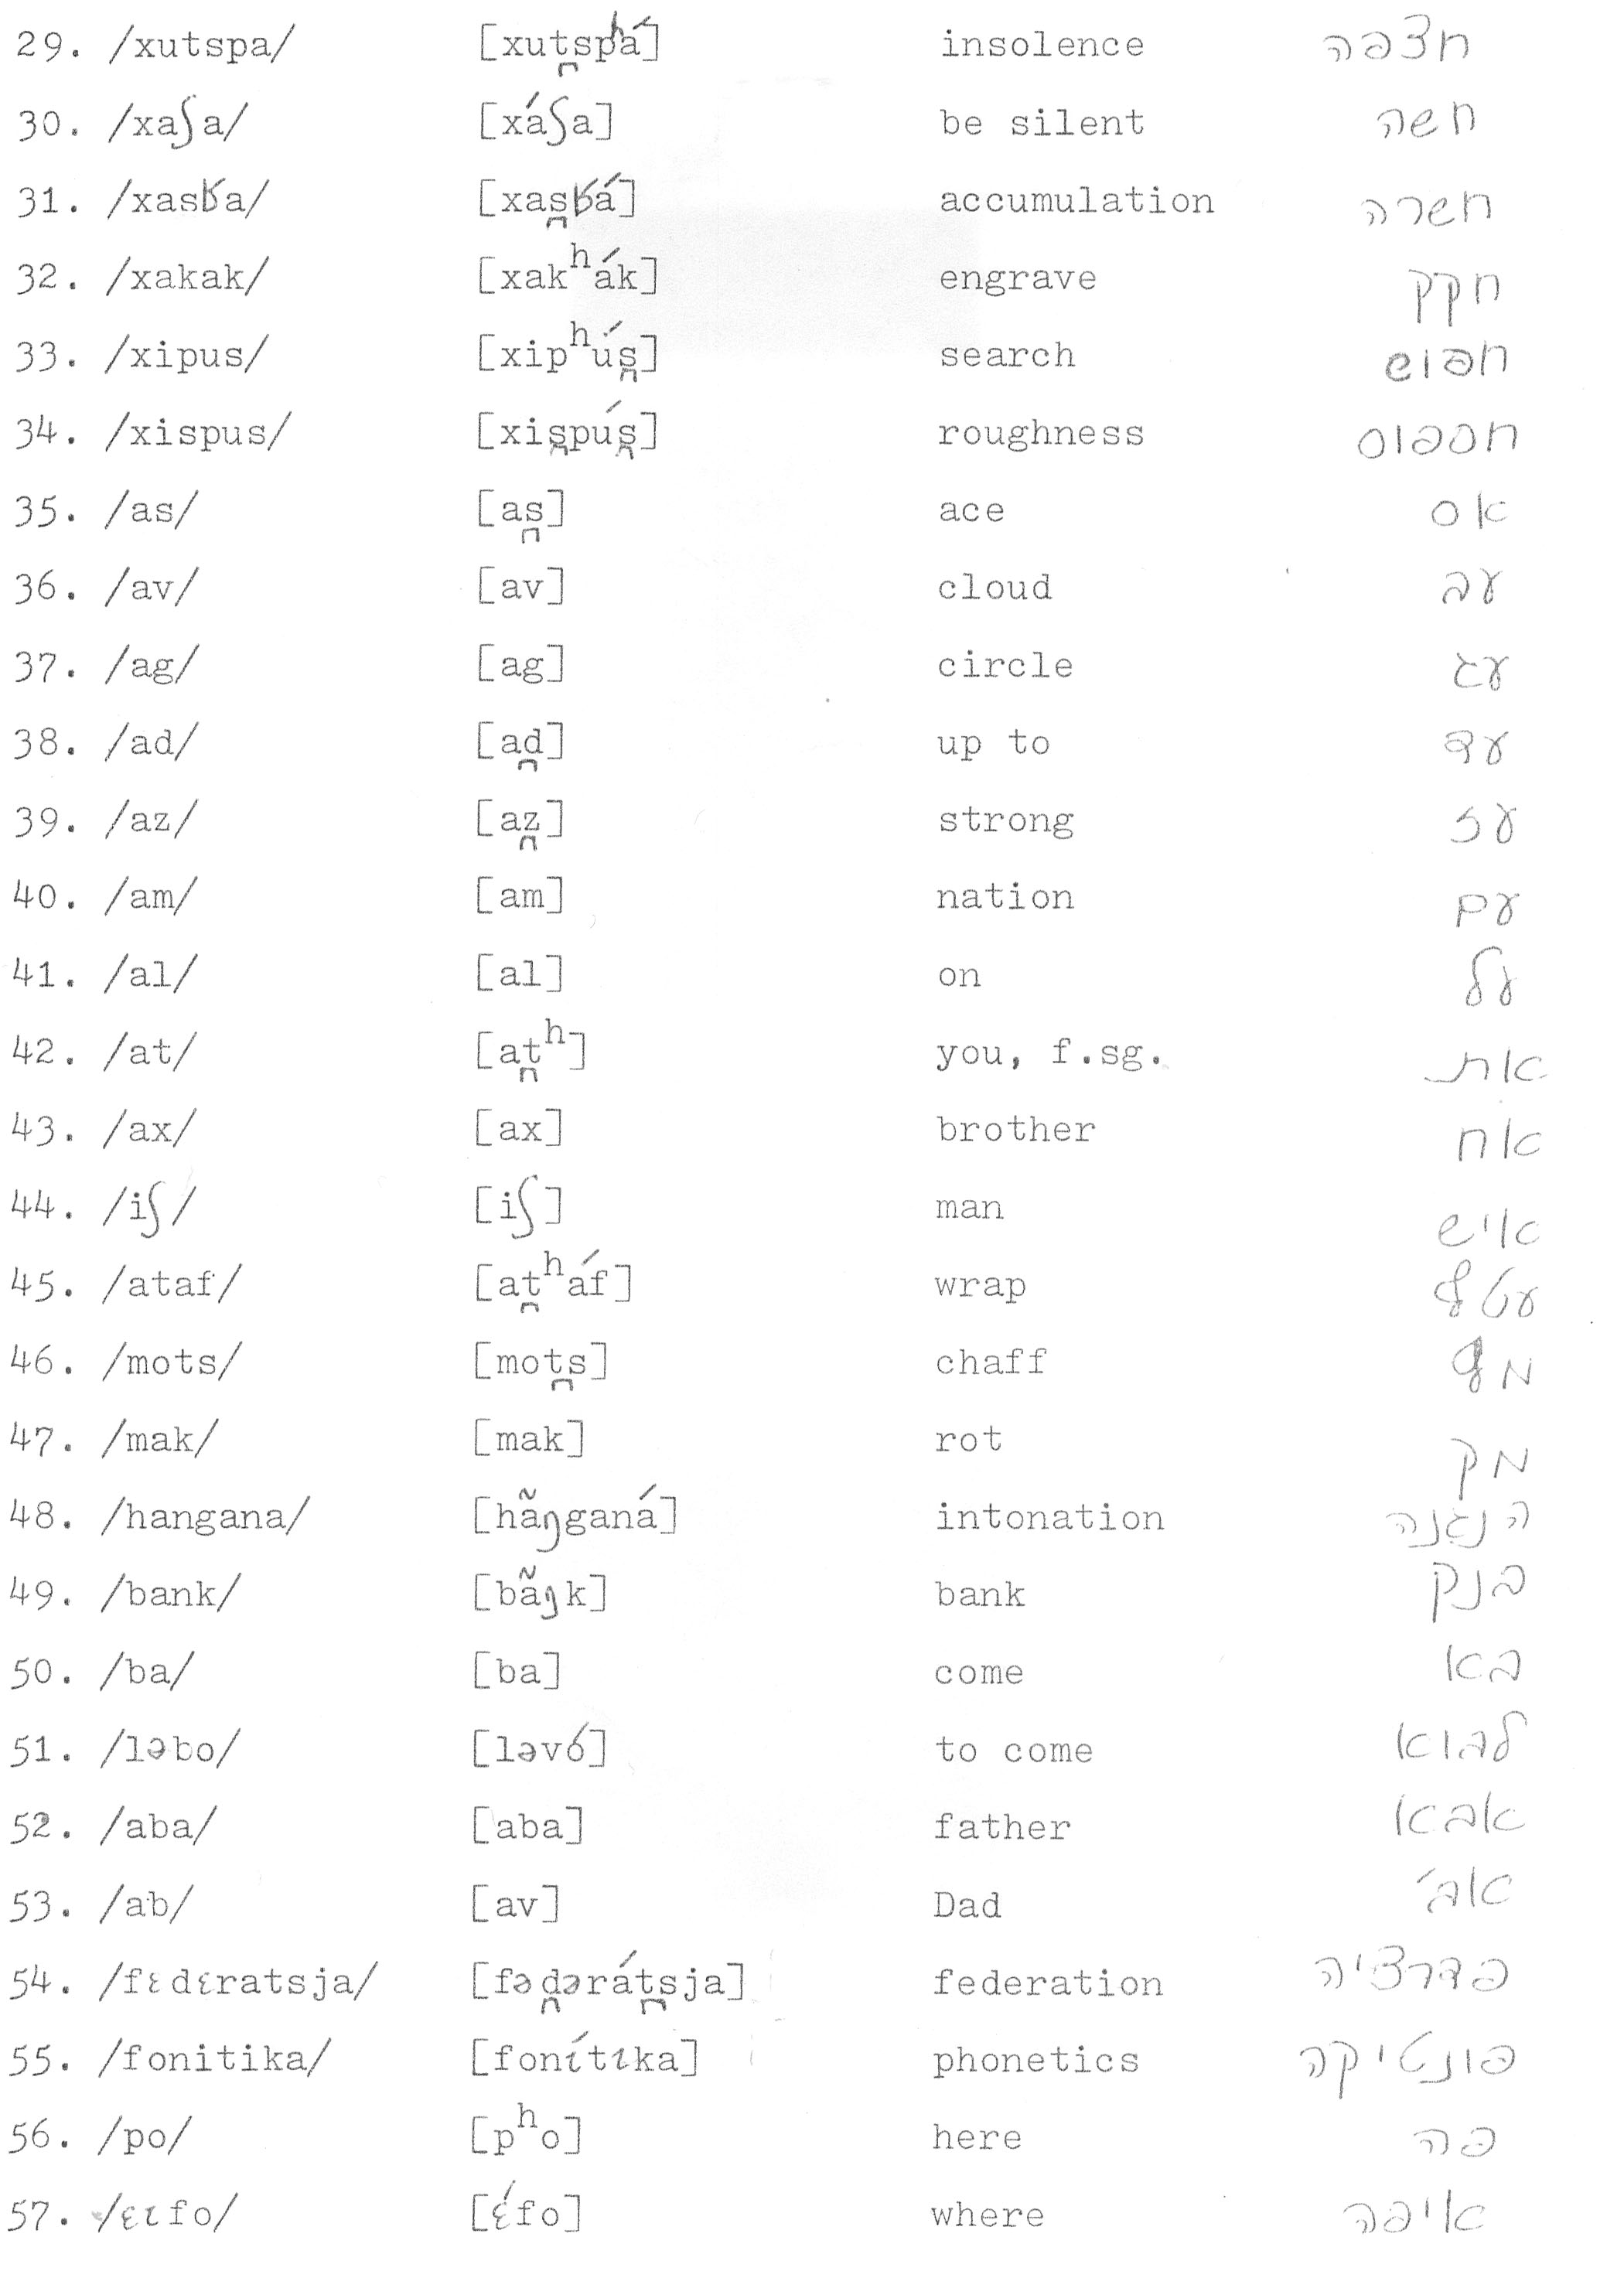 29. /xutspa/ [xut̪s̪pʰá] insolence חצפה
30. /xaʃa/ [xáʃa] be silent חשה
31. /xasʁa/ [xas̪ʁá] accumulation חשרה
32. /xakak/ [xakʰák] engrave חקק
33. /xipus/ [xipʰús̪] search חפוש
34. /xispus/ [xis̪pús̪] roughness חספוס
35. /as/ [as̪] ace אס
36. /av/ [av] cloud עב
37. /ag/ [ag] circle עג
38. /ad/ [ad̪] up to עד
39. /az/ [az̪] strong עז
40. /am/ [am] nation עם
41. /al/ [al] on על
42. /at/ [at̪ʰ] you, f.sg. את
43. /ax/ [ax] brother אח
44. /iʃ/ [iʃ] man איש
45. /ataf/ [at̪ʰáf] wrap עטף
46. /mots/ [mot̪s̪] chaff מץ
47. /mak/ [mak] rot מק
48. /hangana/ [hãŋganá] intonation הנגנה
49. /bank/ [bãŋk] bank בנק
50. /ba/ [ba] come בא
51. /ləbo/ [ləvó] to come לבוא
52. /aba/ [aba] father אבא
53. /ab/ [av] Dad אב'
54. /fɛdɛratsja/ [fəd̪ərát̪s̪ja] federation פדרציה
55. /fonitika/ [fonítɩka] phonetics פונטיקה
56. /po/ [pʰo] here פה
57. /ɛɩfo/ [ɛ́fo] where איפה